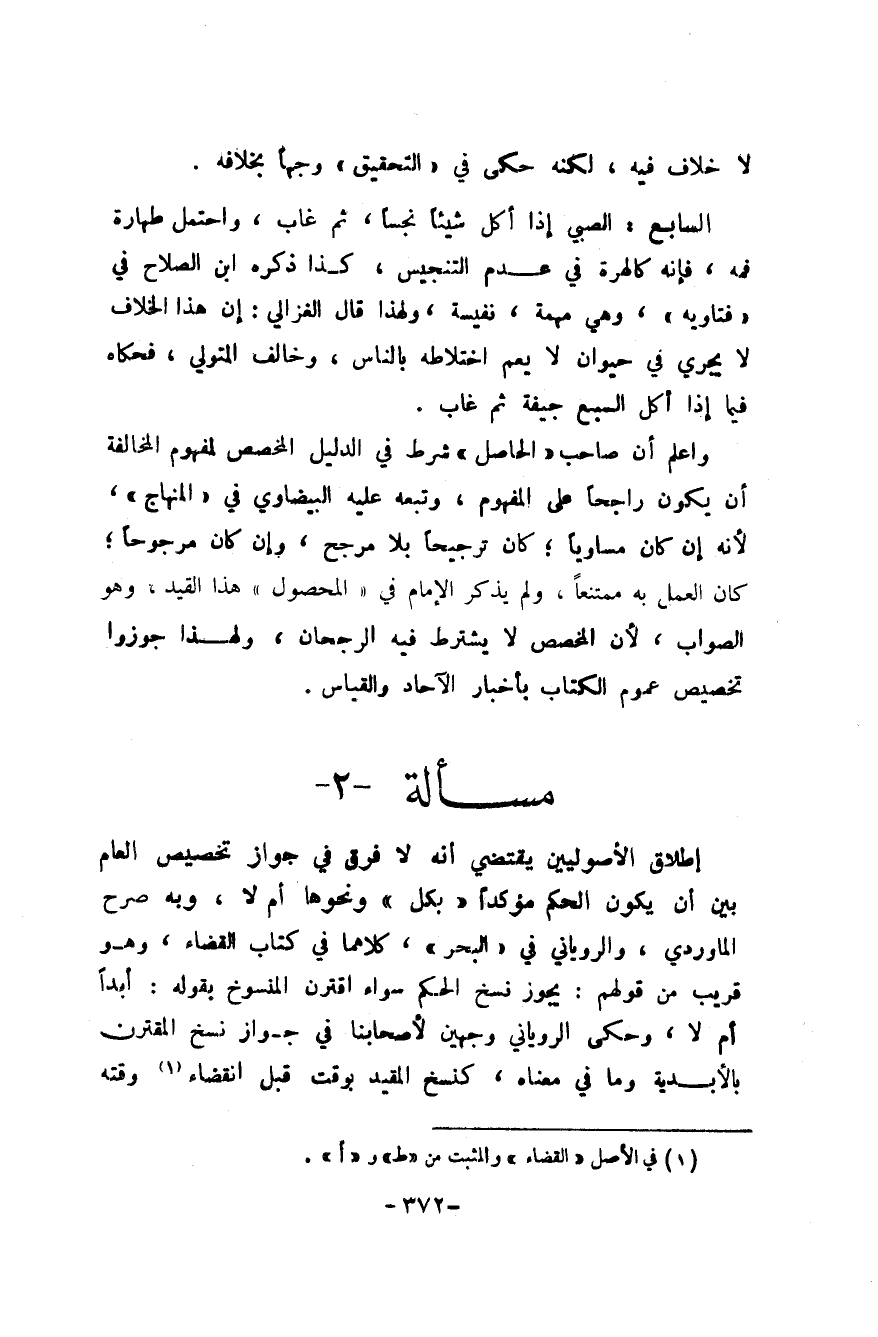 لا خلاف فيه ، لكنه حكى في « التحقيق » وجهاً بخلافه .
السابع : الصبي إذا أكل شيئاً نجساً ، ثم غاب ، واحتمل طهارة
فمه ، فإنه كالهرة في عـــدم التنجيس ، كـذا ذكره ابن الصلاح في
« فتاويه » ، وهي مهمة ، نفيسة ، ولهذا قال الغزالي : إن هذا الخلاف
لا يجري في حيوان لا يعم اختلاطه بالناس ، وخالف المتولي ، فحكاه
فيما إذا أكل السبع جيفة ثم غاب .
واعلم أن صاحب « الحاصل » شرط في الدليل المخصص لمفهوم المخالفة
أن يكون راجحاً على المفهوم ، وتبعه عليه البيضاوي في « المنهاج » ،
لأنه إن كان مساوياً ؛ كان ترجيحاً بلا مرجح ، وإن كان مرجوحاً ؛
كان العمل به ممتنعاً ، ولم يذكر الإمام في « المحصول » هذا القيد ، وهو
الصواب ، لأن المخصص لا يشترط فيه الرجحان ، ولهـــذا جوزوا
تخصيص عموم الكتاب بأخبار الآحاد والقياس .
مســـألة -٢-
إطلاق الأصوليين يقتضي أنه لا فرق في جواز تخصيص العام
بين أن يكون الحكم مؤكداً « بكل » ونحوها أم لا ، وبه صرح
الماوردي ، والروياني في « البحر » ، كلاهما في كتاب القضاء ، وهـو
قريب من قولهم : يجوز نسخ الحكم سواء اقترن المنسوخ بقوله : أبداً
أم لا ، وحكى الروياني وجهين لأصحابنا في جـواز نسخ المقترن
بالأبـــدية وما في معناه ، كنسخ المقيد بوقت قبل انقضاء (١) وقته
(١) في الأصل « القضاء » والمثبت من « ط » و « أ » .
-٣٧٢-